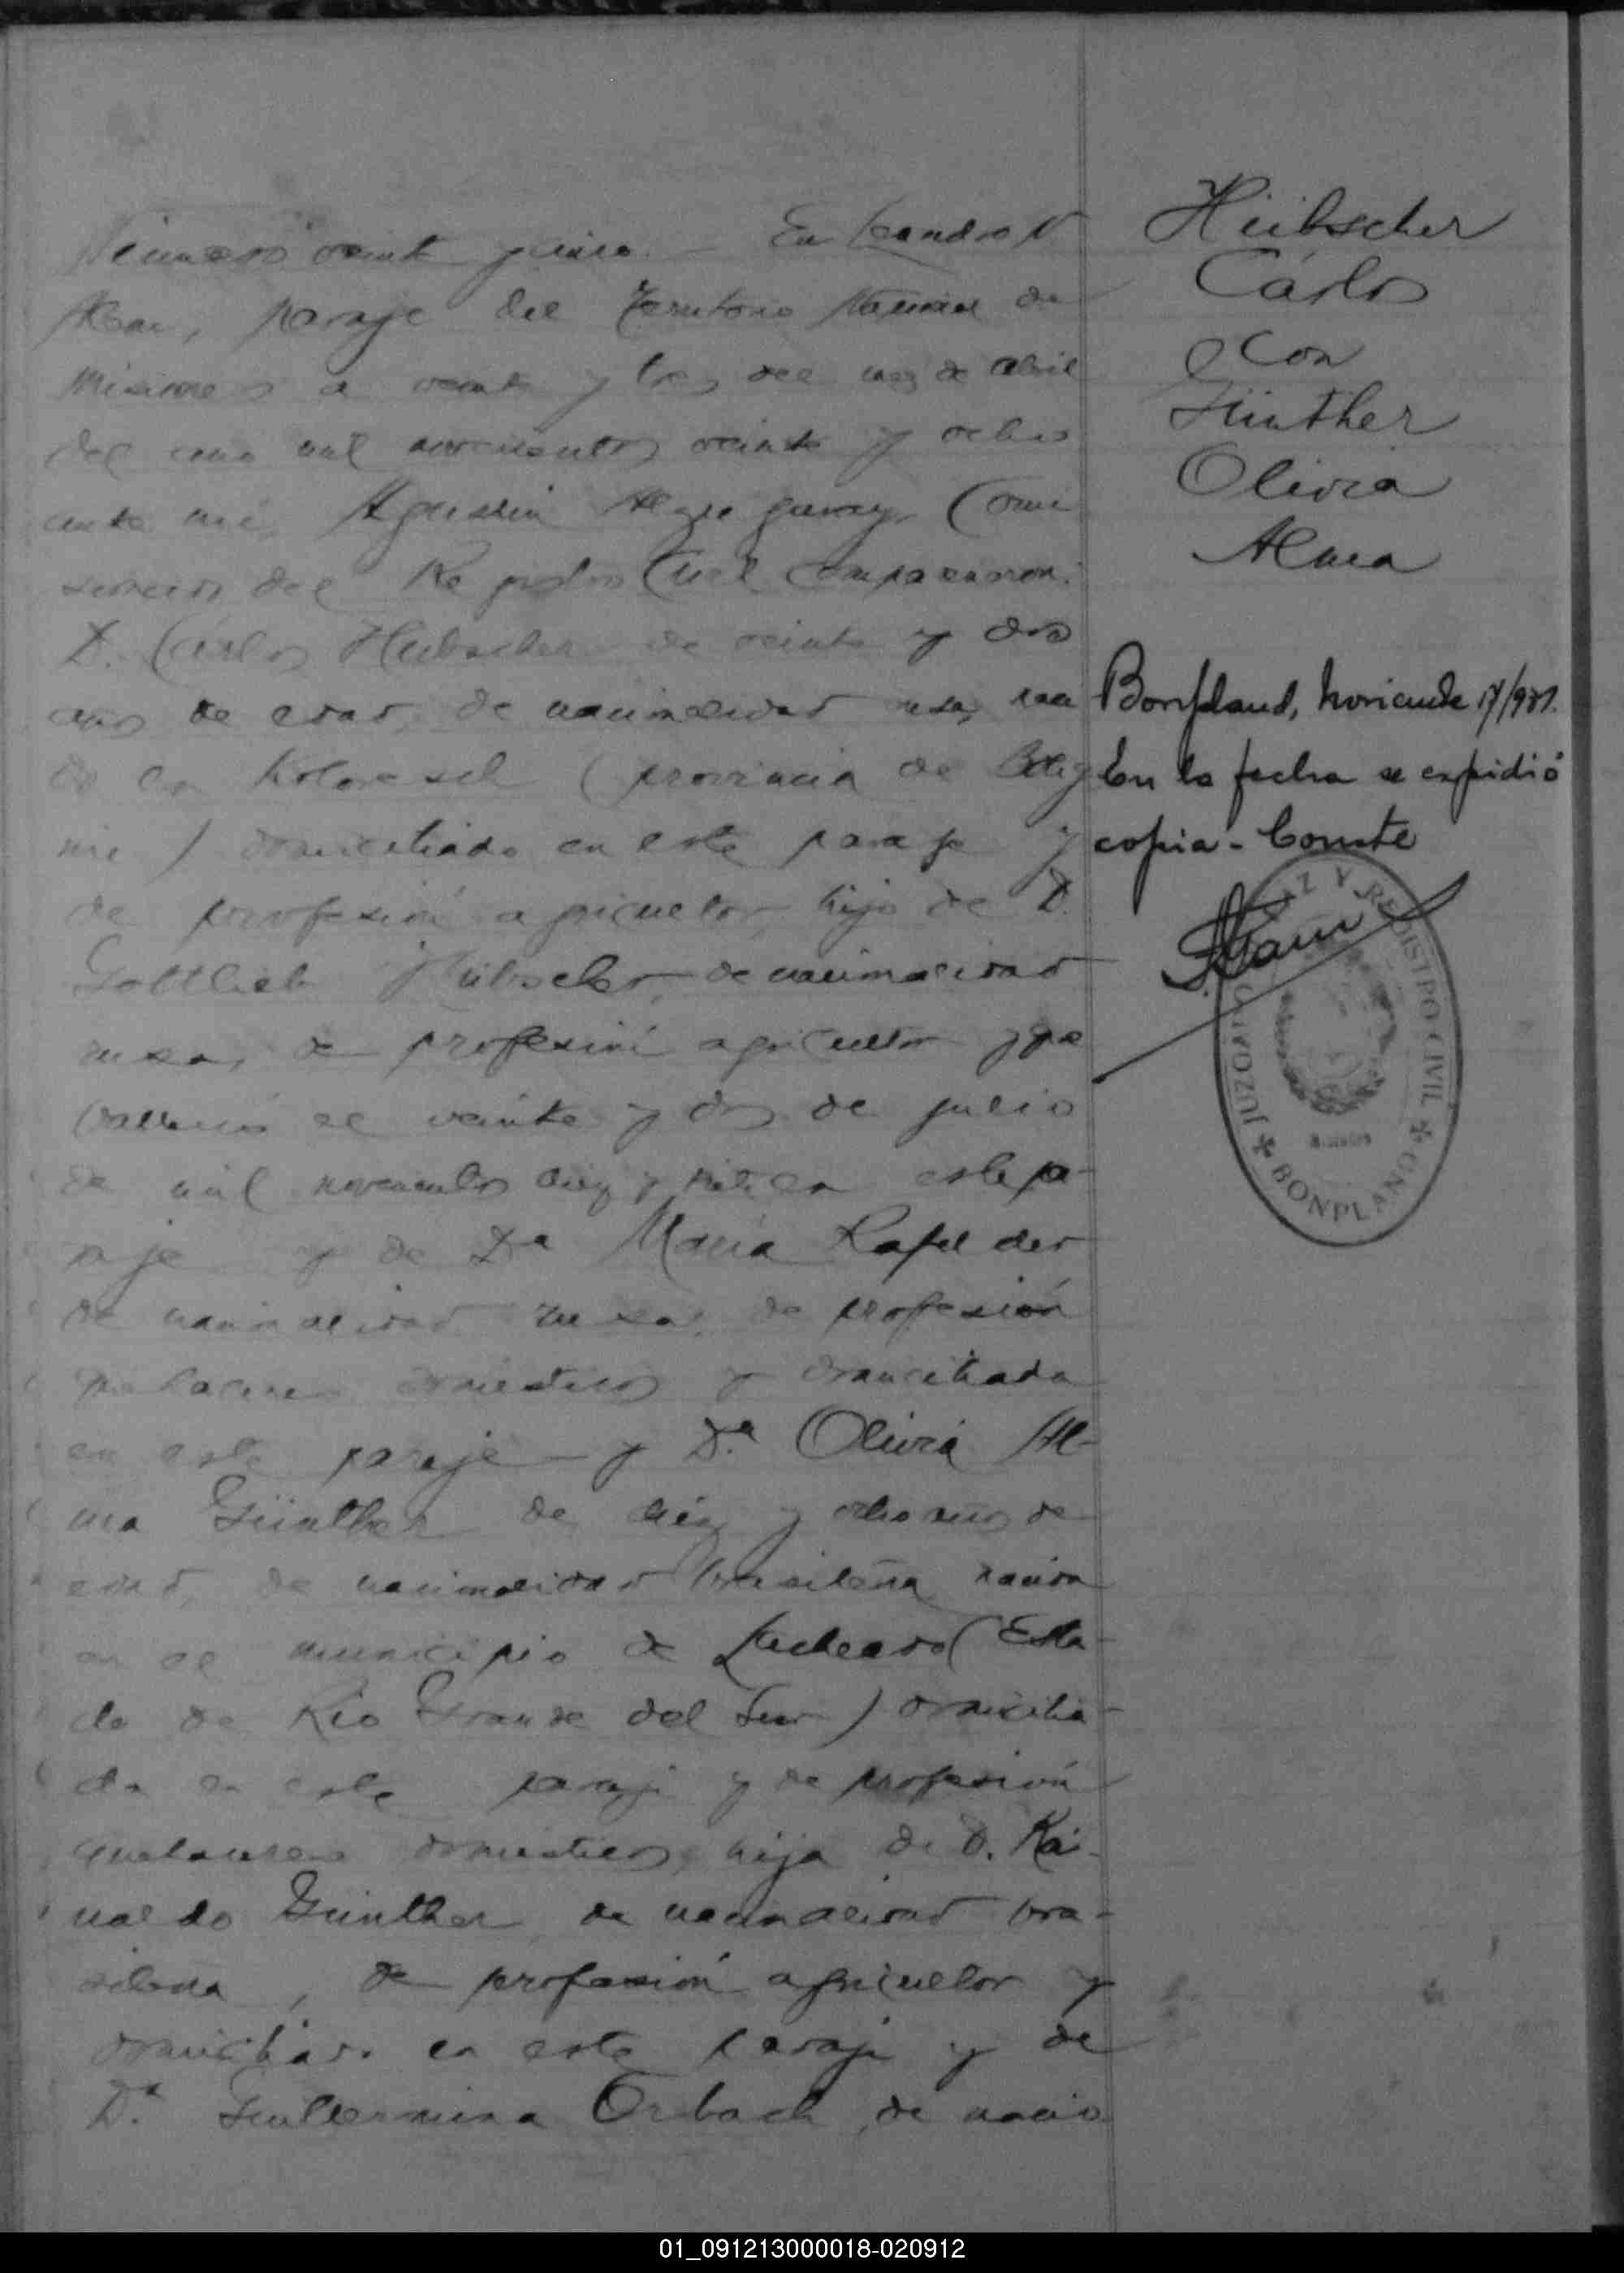 Número veinte y cinco. En Leandro N
Alem, paraje del Territorio Nacional de
Misiones a veinte y tres del mes de Abril
del año mil novecientos veinte y ocho
ante mí, Agustin Comi
sario del Registro Civil comparecieron:
D. Cárlos Hübscher de veinte y dos
años de edad, de nacionalidad rusa, naci
do en (provincia de
nie) domiciliado en este paraje y
de profesión agricultor, hijo de D.
Gottlieb Hübscher, de nacionalidad
rusa, de profesión agricultor y que
falleció el veinte y dos de julio
de mil novecientos diez y siete en este pa-
raje y de Dª María
de nacionalidad rusa, de profesión
quehaceres domésticos y domiciliada
en este paraje y Dª Olivia Al-
ma Günther de diez y ocho años de
edad, de nacionalidad brasileña nacida
en el municipio de Lacheado (Esta-
do de Rio Grande del Sur) domicilia-
da en este paraje y de profesión
quehaceres domésticos, hija de D. Rai-
naldo Günther, de nacionalidad bra-
sileña, de profesión agricultor y
domiciliado en este paraje y de
Dª Guillermina Orbach, de nacio
Hübscher
Cárlos
Con
Günther
Olivia
Alma
Bonpland, Noviembre 17/
En la fecha se expidió
copia - Conste
JUZGADO DE PAZ Y REGISTRO CIVIL
BONPLAND
01_091213000018-020912